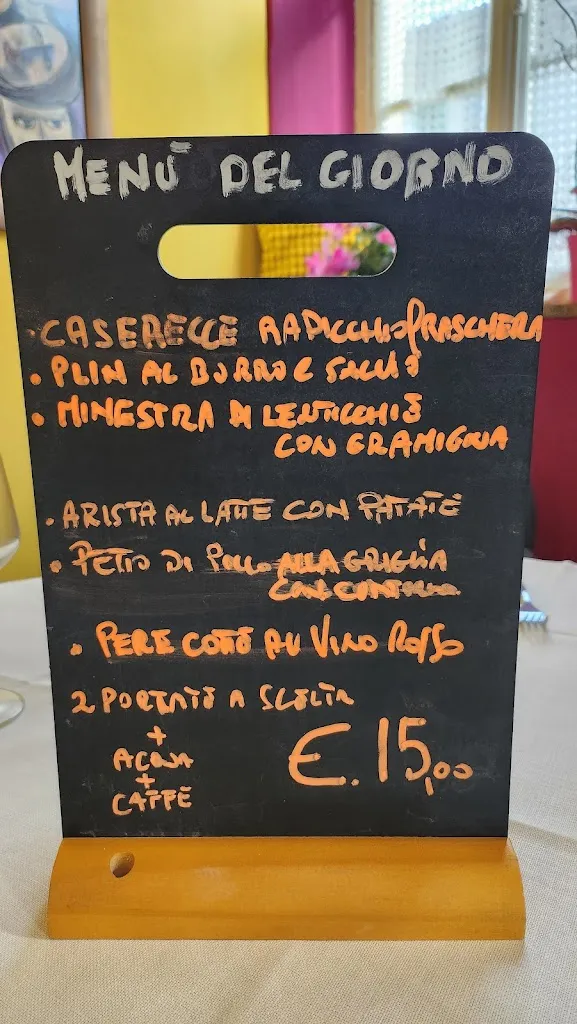 MENÙ DEL GIORNO
• CASERECCE RADICCHIO & RASCHERA
• PLIN AL BURRO E SALVIA
• MINESTRA DI LENTICCHIE
CON GRAMIGNA
• ARISTA AL LATTE CON PATATE
• PETTO DI POLLO ALLA GRIGLIA
CON CONTORNO
• PERE COTTE AL VINO ROSSO
2 PORTATE A SCELTA
+
ACQUA
+
CAFFÈ
€. 15,00